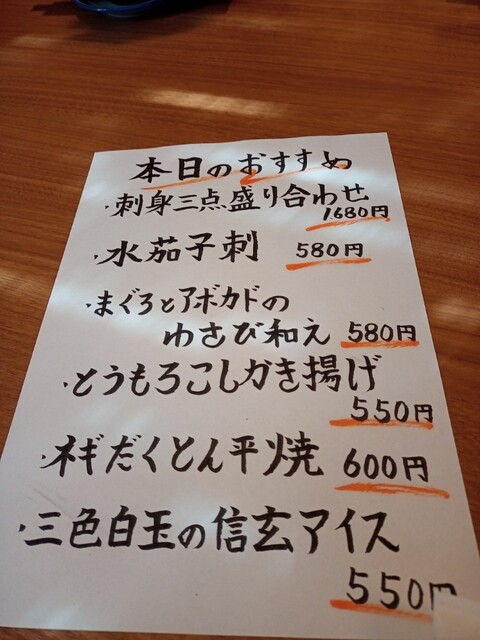 本日のおすすめ
・刺身三点盛り合わせ
1,680円
・水茄子刺 580円
・まぐろとアボカドの
わさび和え 580円
・とうもろこしかき揚げ
550円
・ネギだくとん平焼 600円
・三色白玉の信玄アイス
550円